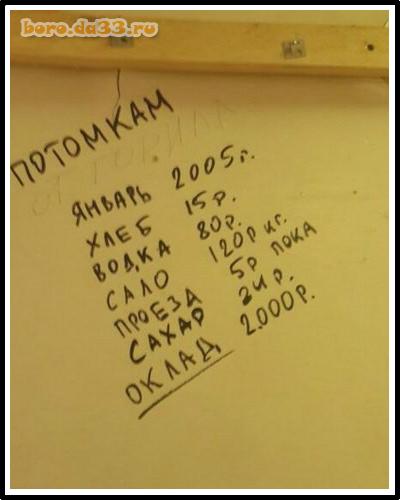 boro.da33.ru
ПОТОМКАМ
ЯНВАРЬ 2005г.
ХЛЕБ 15р.
ВОДКА 80р.
САЛО 120р кг.
ПРОЕЗД 5р ПОКА
САХАР 24р.
ОКЛАД 2.000р.